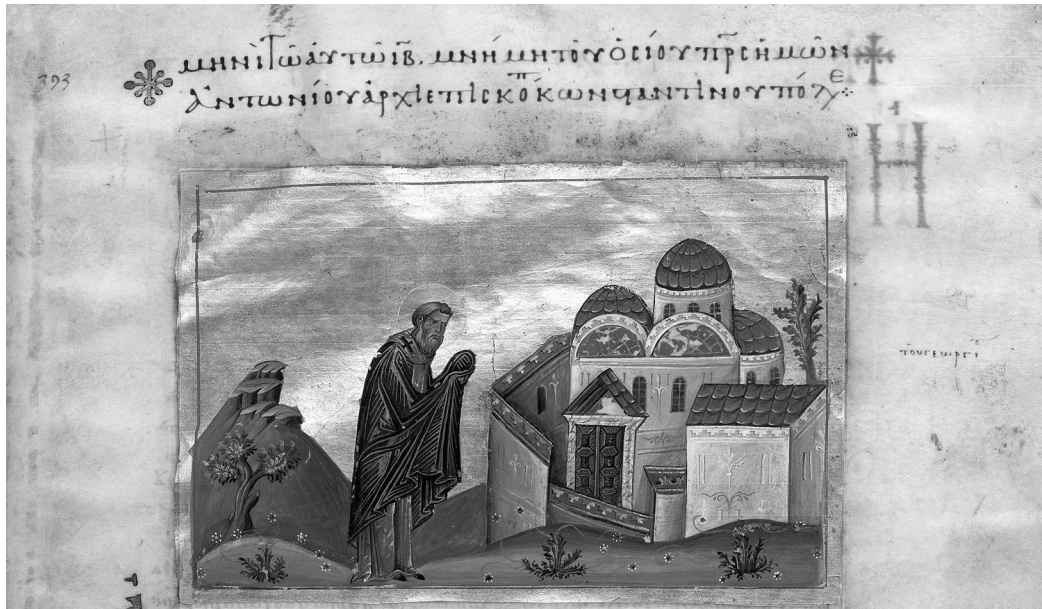 393
μηνὶ τῶ αὐτῶ ιβ. μνήμη τοῦ ὁσίου πρς ἡμῶν
Ἀντωνίου ἀρχιεπισκόπ κωνσταντινουπόλε
Η